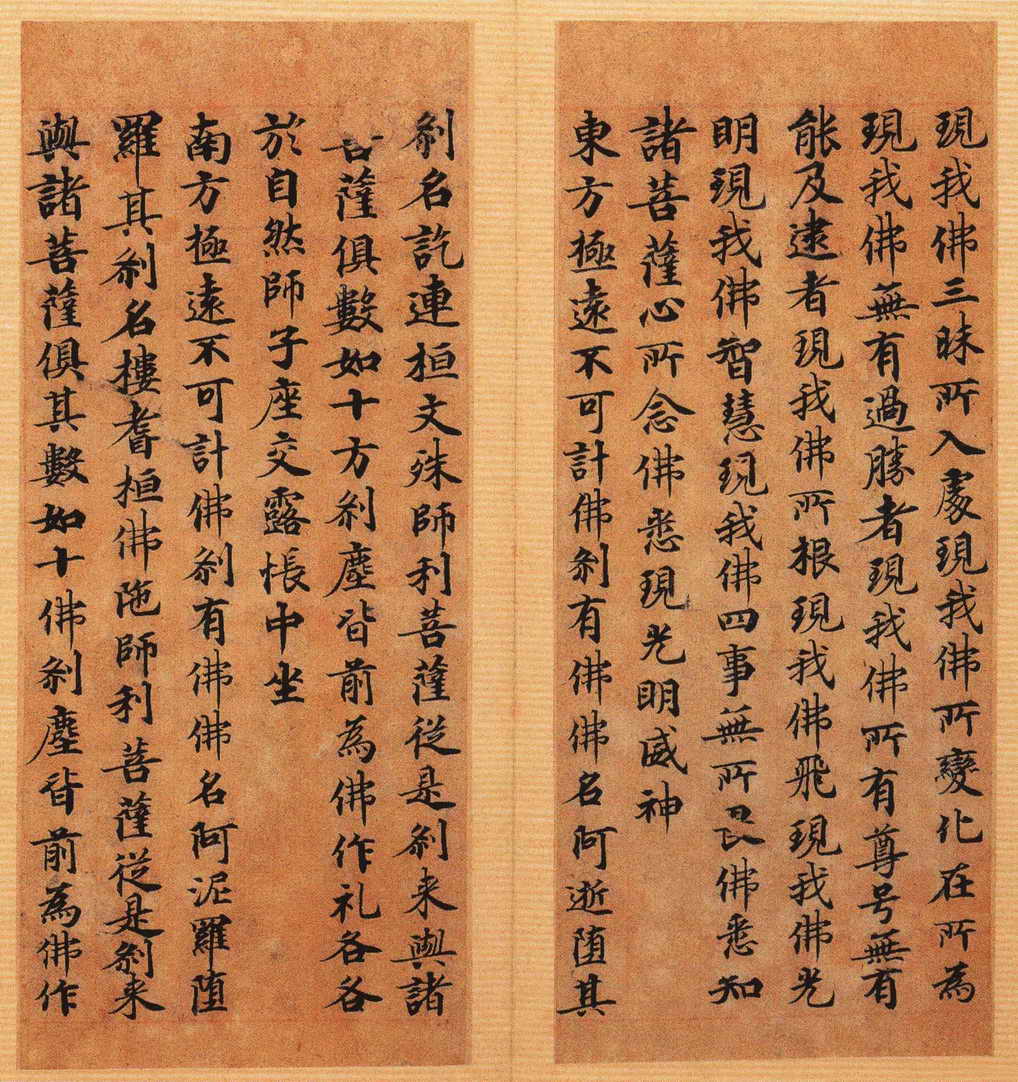 現我佛三昧所入處現我佛所變化在所為
現我佛無有過勝者現我佛所有尊号無有
能及逮者現我佛所根現我佛飛現我佛光
明現我佛智慧現我佛四事無所畏佛悉知
諸菩薩心所念佛悉現光明威神
東方極遠不可計佛剎有佛佛名阿逝墮其
剎名訖連桓文殊師利菩薩從是剎来與諸
菩薩俱數如十方剎塵皆前為佛作礼各各
於自然師子座交露帳中坐
南方極遠不可計佛剎有佛佛名阿泥羅墮
羅其剎名樓耆桓佛陁師利菩薩從是剎来
與諸菩薩俱其數如十佛剎塵皆前為佛作